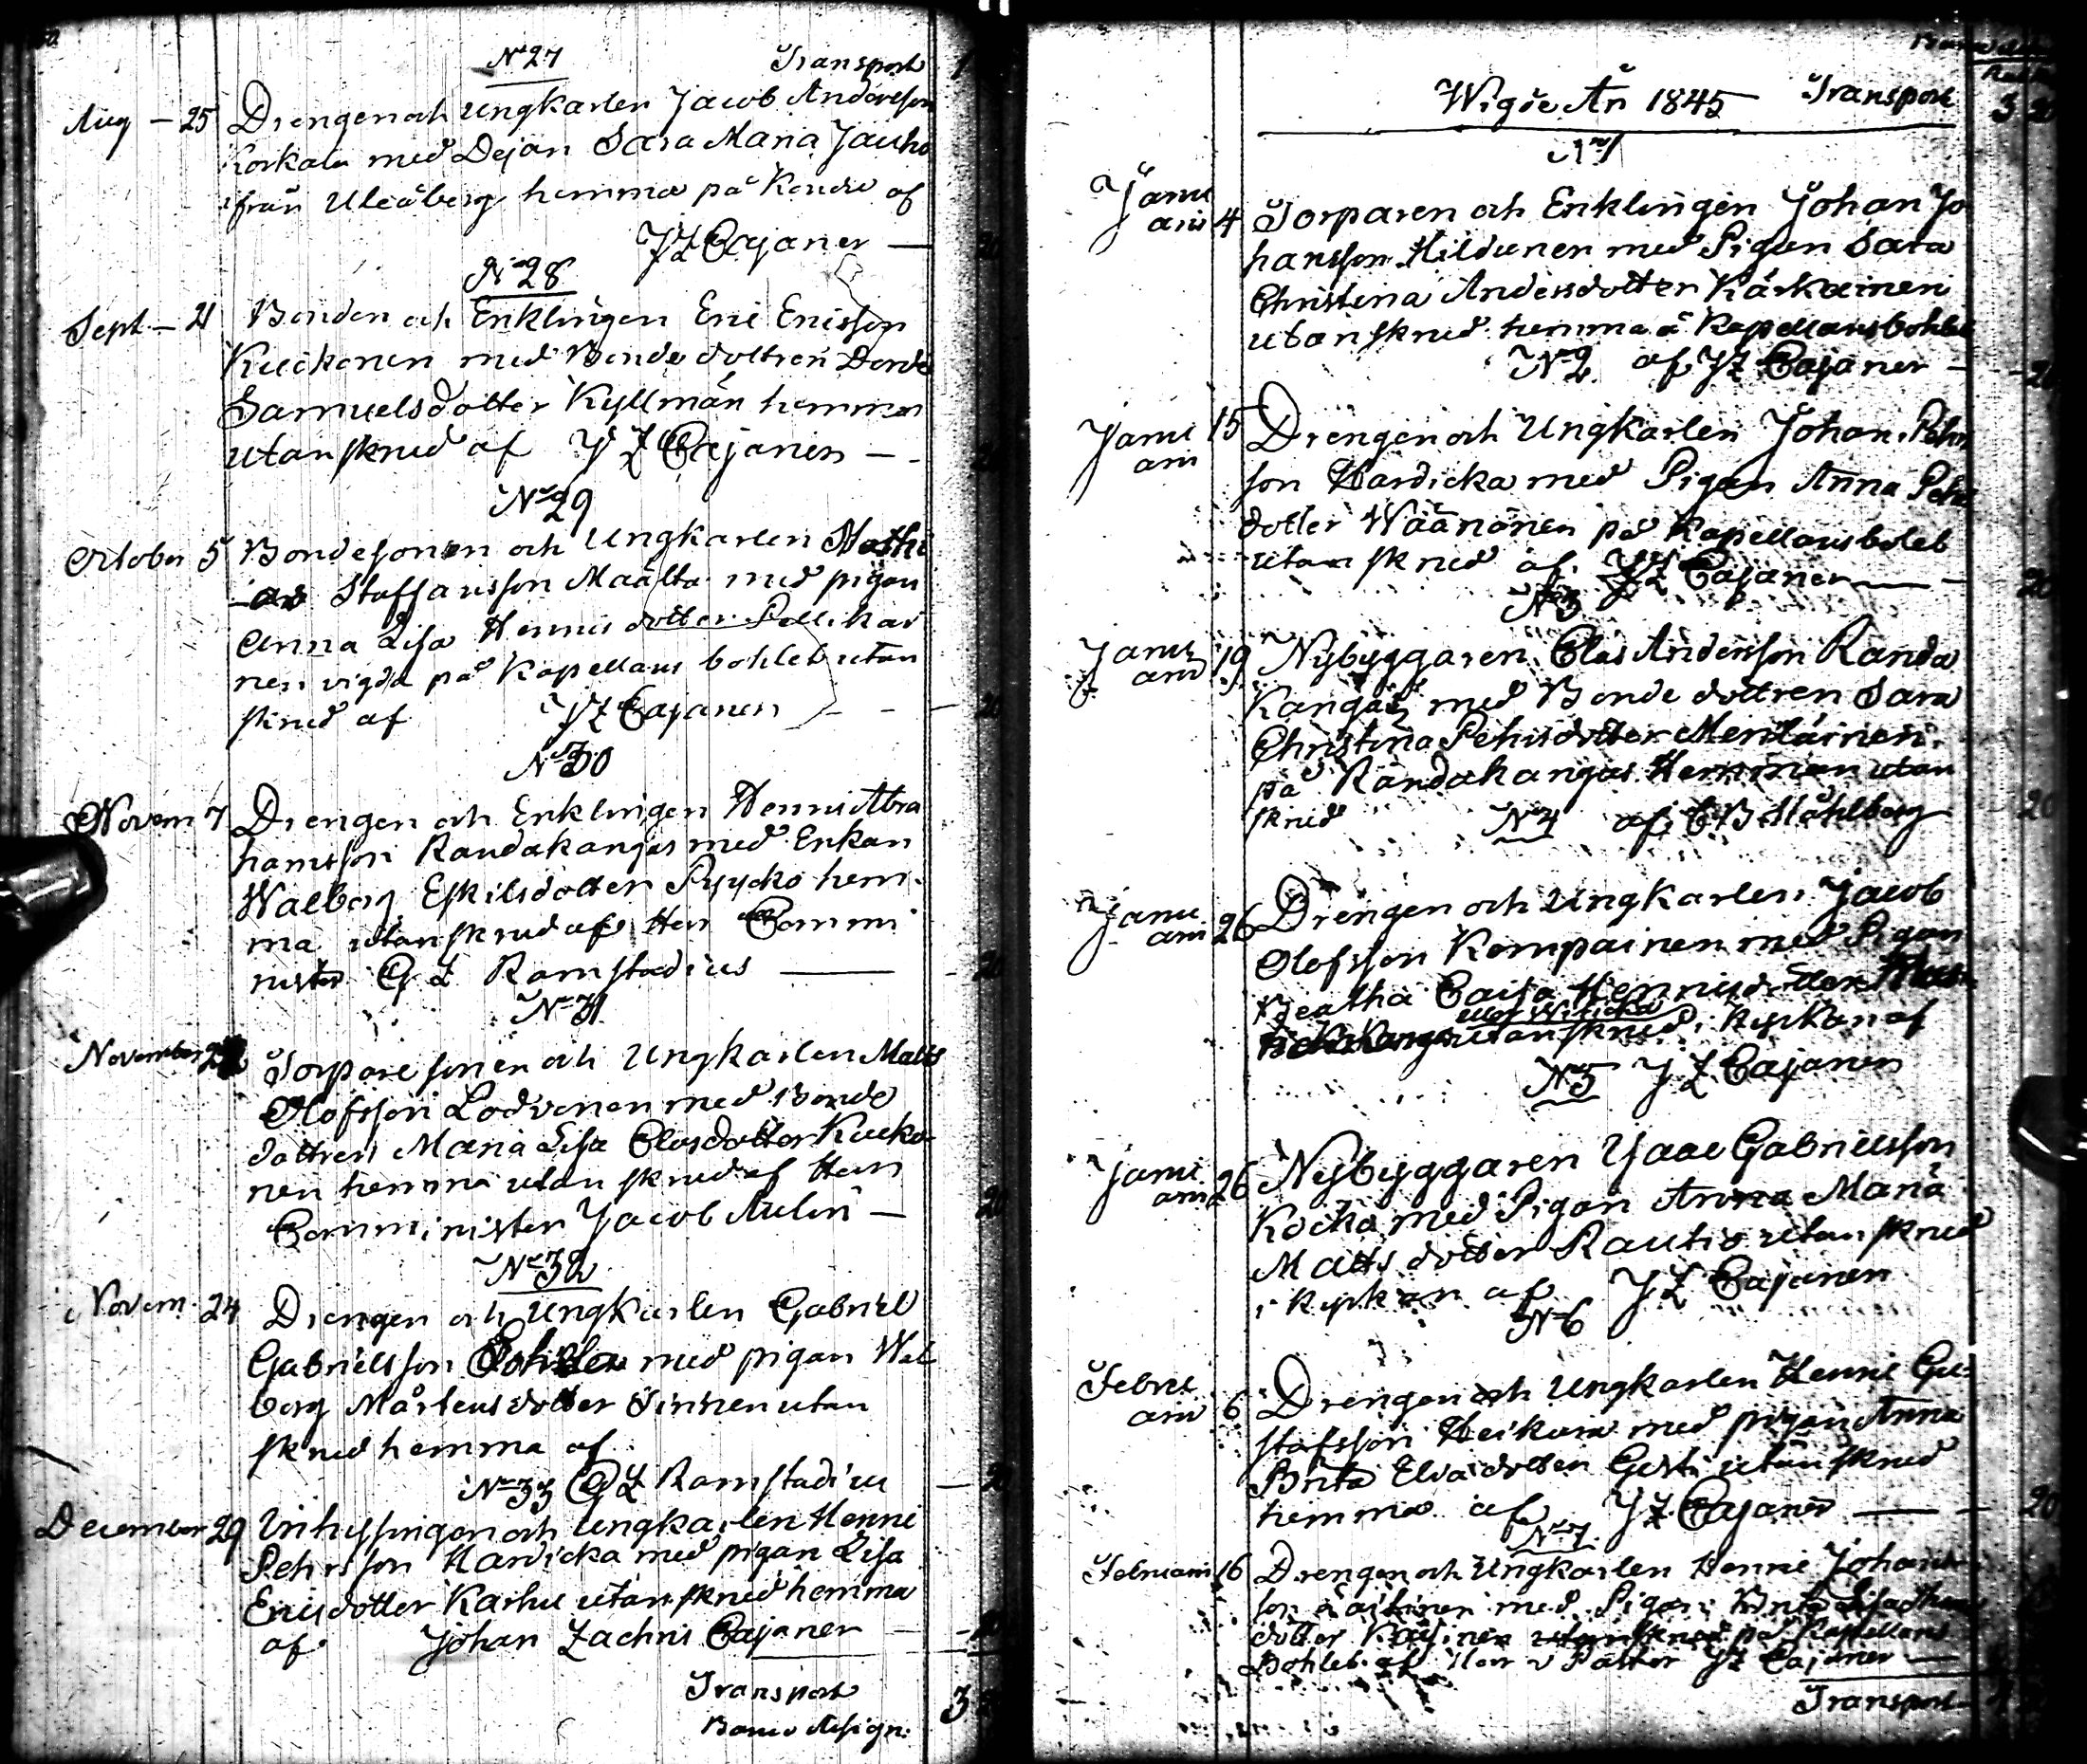 No 27 Transport
Aug – 25 Drengen och Ungkarlen Jacob Andersson
Korkala med Dejan Sara Maria Jauho
från Uleåborg hemma på Kondie af
JZ Cajaner —
No 28
Sept – 21 Bonden och Enklingen Eric Ericsson
Kuckonen med Bonde dottren Dorde
Samuelsdotter Kyllmän hemma
utan skrud af J Z Cajanen – - 20
No 29
October 5 Bondesonen och Ungkarlen Mathi
as Staffansson Määttä med pigan
Anna Lisa Hennisdotter Pellikai
nen vigda på Kapellans bohlet utan
skrud af JZ Cajanen - - 20
No 30
Novem 7 Drengen och Enklingen Henric Abra
hamsson Randakangas med Enkan
Walborg Eskilsdotter Pyycko hem-
ma utan skrud af Herr Commi
nister G Z Ramstadius — 20
No 31
November Torpare sonen och Ungkarlen Matts
Olofsson Lodvonen med Bonde
dottren Maria Lisa Clasdotter Kucko-
nen hemma utan skrud af Herr
Comminister Jacob Aulin – 20
No 32
Novem. 24 Drengen och Ungkarlen Gabriel
Gabrielsson med pigan Wal
borg Mårtensdotter utan
skrud hemma af
No 33 G Z Ramstadius — 20
December 29 Inhysingen och Ungkarlen Henric
Pehrsson Hardicka med pigan Lisa
Ericsdotter Karhu utan skrud hemma
af Johan Zachris Cajaner
Transport 3
Banco Assign:
Wigde År 1845 Transport 3 20
No 1
Janu
arii 4 Torparen och Enklingen Johan Jo
hansson Hildunen med Pigan Sara
Christina Andersdotter Kärkäinen
utan skrud hemma å Kapellansbohlet
No 2 af JZ Cajaner – 20
Janu 15 Drengen och Ungkarlen Johan Pehrs
arii
son Hardicka med Pigan Anna Pehrs
dotter Wäänänen på Kapellansbolet
utan skrud af JZ Cajaner — 20
No 3
Janu 19 Nybyggaren Clas Andersson Randa
arii
Kangas med Bonde dottren Sara
Christina Pehrsdotter
på Randakangas Hemman utan
skrud No 4 af C B Ståhlberg 20
Janu
arii 26 Drengen och Ungkarlen Jacob
Olofsson Kemppainen med Pigan
Beatha Caisa Henricsdotter
utan skrud i kyrkan af
No 5 J Z Cajanen
Janu
arii 26 Nybyggaren Isaac Gabrielsson
Kocko med Pigan Anna Maria
Mattsdotter Rautio utan skrud
i kyrkan af JZ Cajanen
No 6
Febru
arii 6 Drengen och Ungkarlen Henric Gu-
stafsson Heikura med pigan Anna
Brita utan skrud
hemma af JZ Cajaner — 20
No 7
Februarii 16 Drengen och Ungkarlen Henric Johans
son med Pigan Brita Lisa
dotter utan skrud på Kapellans
Bohlet af Herr v Pastor JZ Cajaner —
Transport